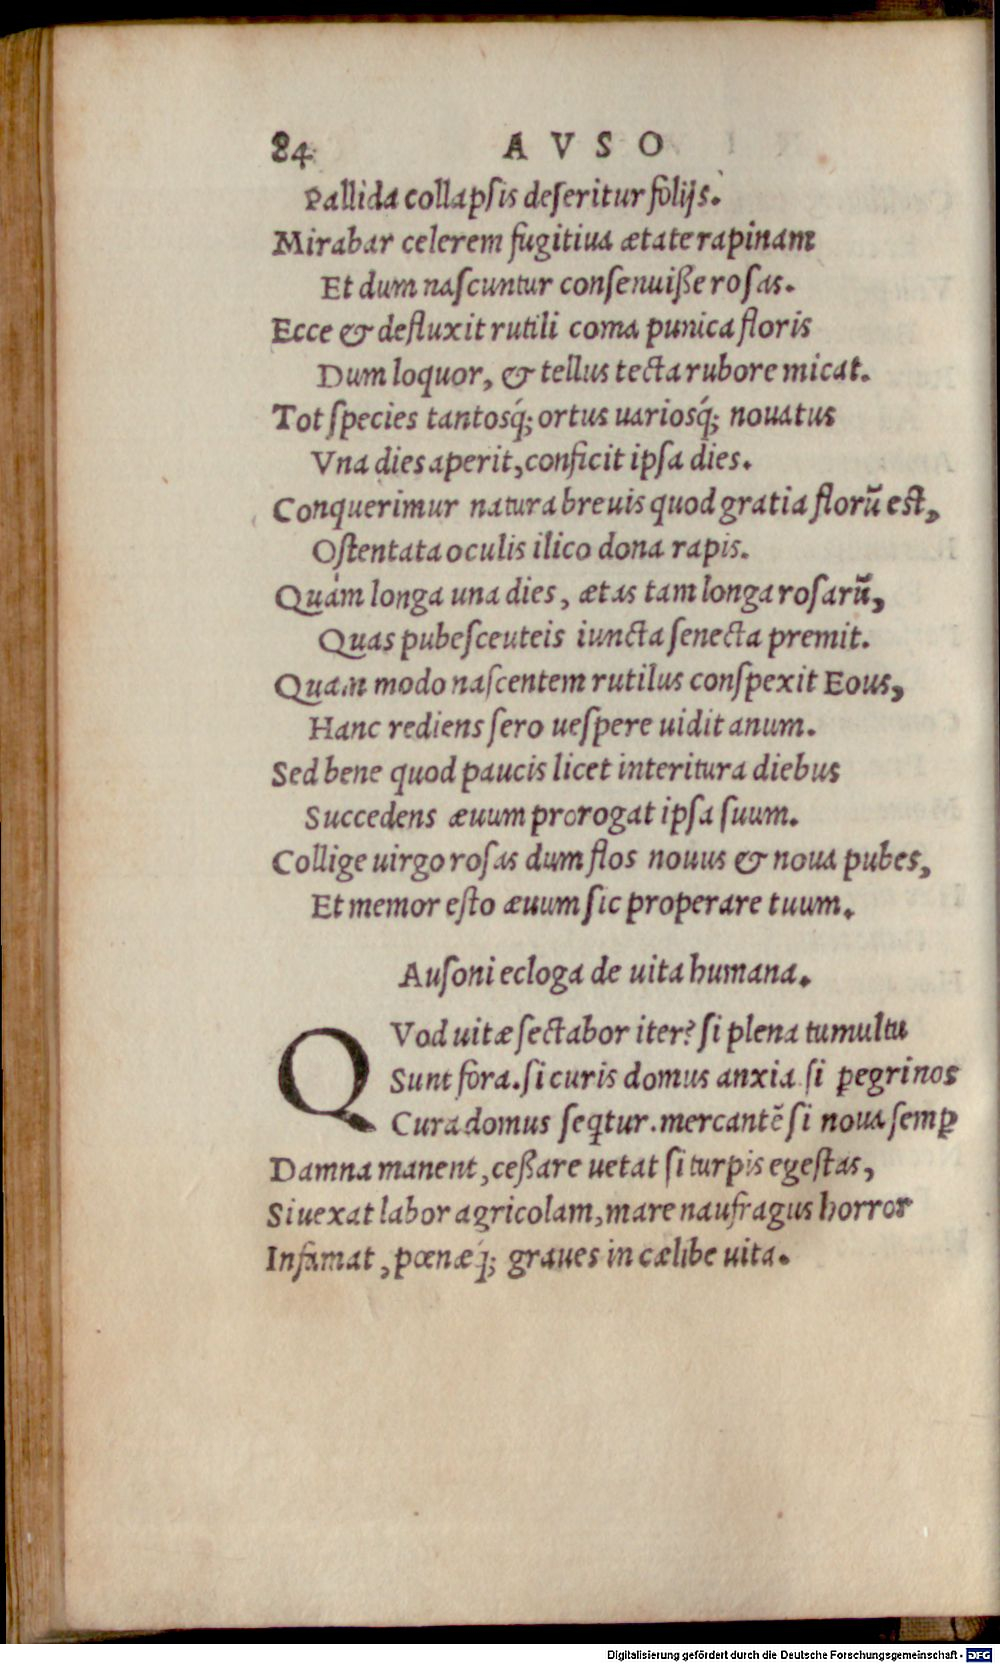 84 AVSO
Pallida collapſis deſeritur folijs.
Mirabar celerem fugitiua ætate rapinam
Et dum naſcuntur conſenuiße roſas.
Ecce & defluxit rutili coma punica floris
Dum loquor, & tellus tecta rubore micat.
Tot ſpecies tantosq́; ortus uariosq́; nouatus
Vna dies aperit, conficit ipſa dies.
Conquerimur natura breuis quod gratia florũ eſt,
Oſtentata oculis ilico dona rapis.
Quàm longa una dies, ætas tam longa roſarũ,
Quas pubeſceuteis iuncta ſenecta premit.
Quam modo naſcentem rutilus conſpexit Eous,
Hanc rediens ſero ueſpere uidit anum.
Sed bene quod paucis licet interitura diebus
Succedens æuum prorogat ipſa ſuum.
Collige uirgo roſas dum flos nouus & noua pubes,
Et memor eſto æuum ſic properare tuum.
Auſoni ecloga de uita humana.
QVod uitæ ſectabor iter? ſi plena tumultu
Sunt fora. ſi curis domus anxia ſi peregrinos
Cura domus ſeqtur. mercantẽ ſi noua ſemꝑ
Damna manent, ceßare uetat ſi turpis egeſtas,
Si uexat labor agricolam, mare naufragus horror
Infamat, pœnæq́; graues in cælibe uita.
Digitalisierung gefördert durch die Deutsche Forschungsgemeinschaft - DFG